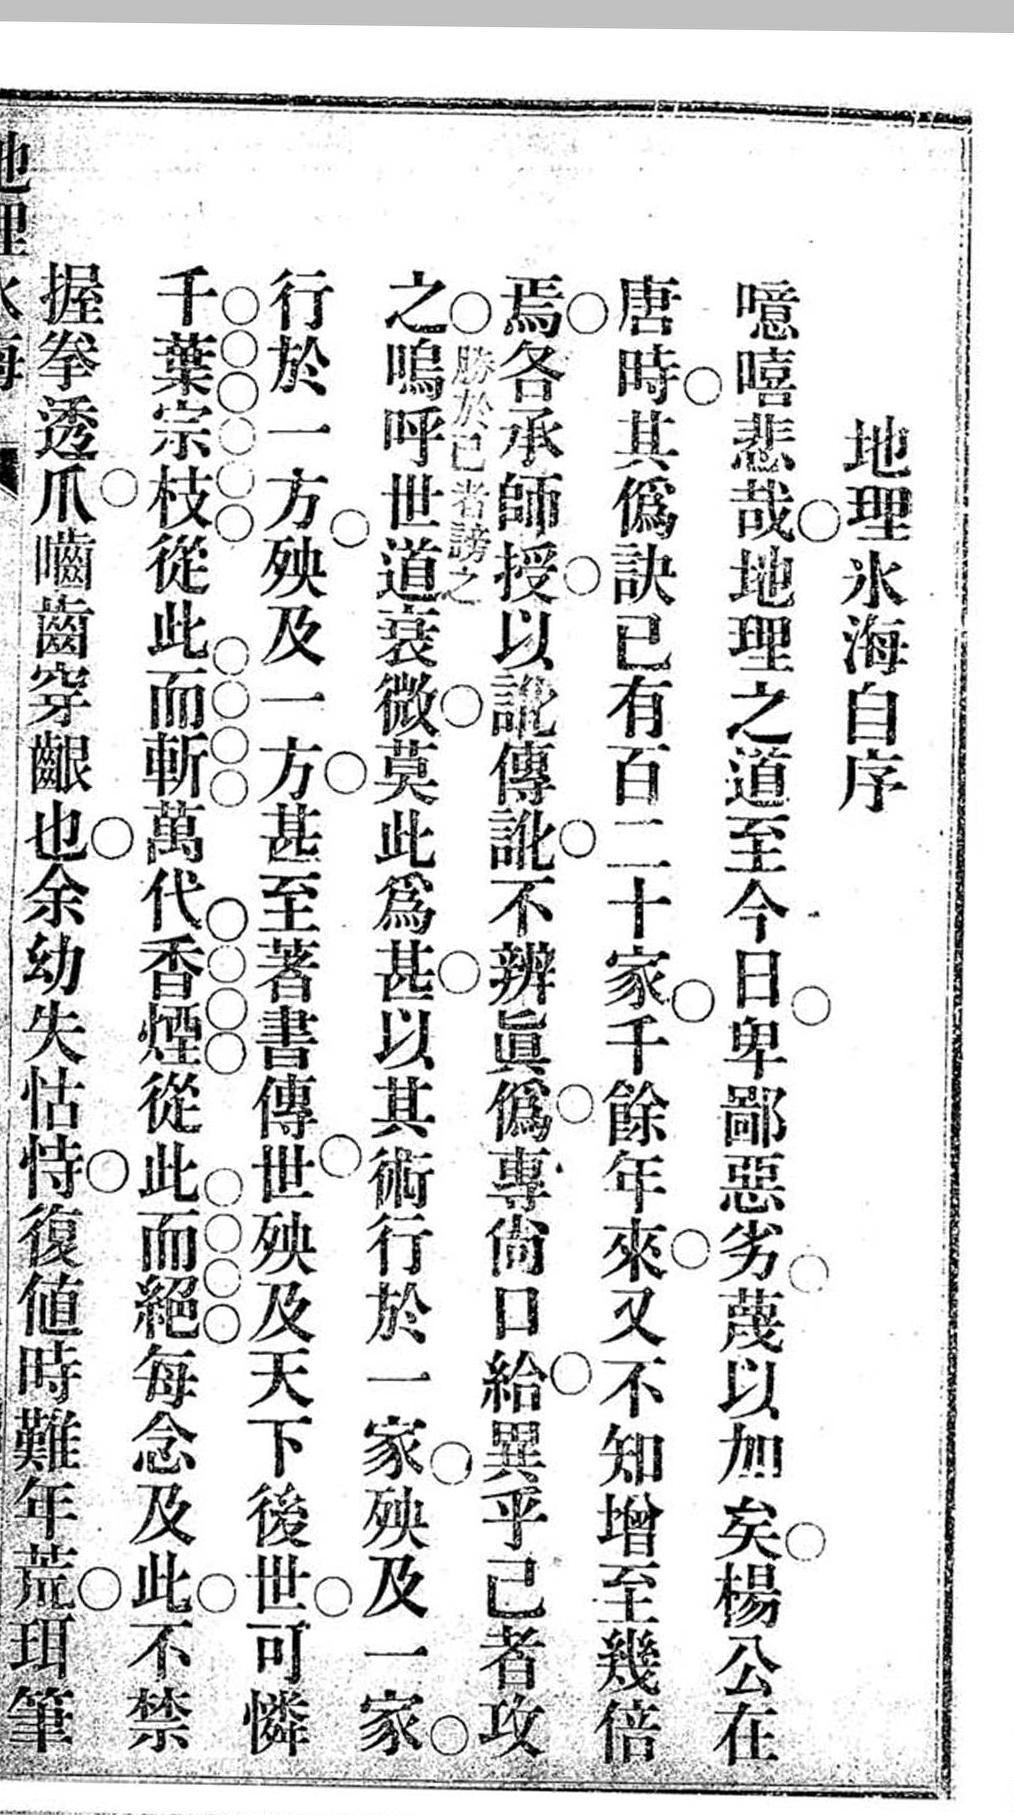 地理氷海自序
噫嘻悲哉地理之道至今日卑鄙惡劣蔑以加矣楊公在
唐時其僞訣已有百二十家千餘年來又不知增至幾倍
焉各承師授以訛傳訛不辨眞僞專尙口給異乎己者攻
勝於己者謗之
之嗚呼世道衰微莫此爲甚以其術行於一家殃及一家
行於一方殃及一方甚至著書傳世殃及天下後世可憐
千葉宗枝從此而斬萬代香煙從此而絕每念及此不禁
握拳透爪嚙齒穿齦也余幼失怙恃復値時難年荒珥筆
地理氷海